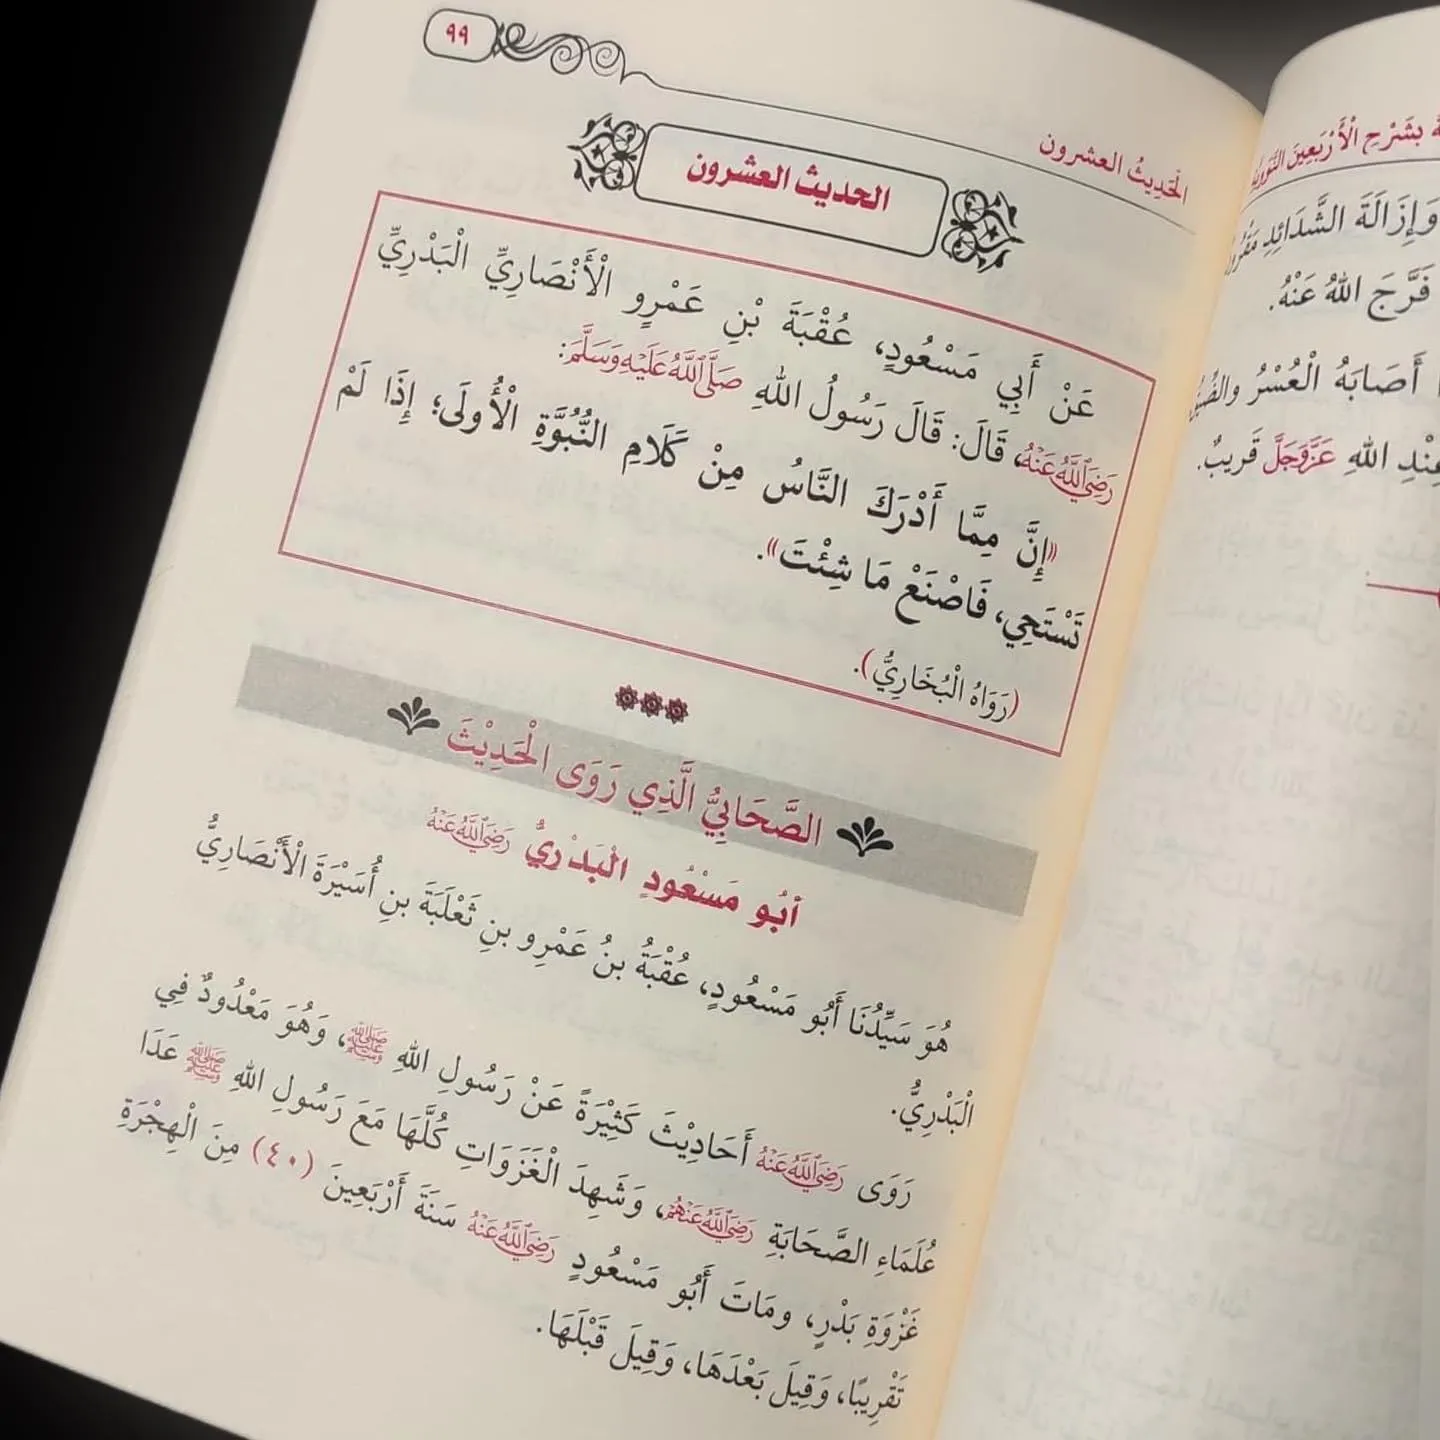 ٩٩
الْحَدِيثُ العشرون
الحديث العشرون
عَنْ أَبِي مَسْعُودٍ، عُقْبَةَ بْنِ عَمْرٍو الْأَنْصَارِيِّ الْبَدْرِيِّ
رَضِيَ اللَّهُ عَنْهُ، قَالَ: قَالَ رَسُولُ اللهِ صَلَّى اللَّهُ عَلَيْهِ وَسَلَّمَ:
«إِنَّ مِمَّا أَدْرَكَ النَّاسُ مِنْ كَلَامِ النُّبُوَّةِ الْأُولَى؛ إِذَا لَمْ
تَسْتَحِي، فَاصْنَعْ مَا شِئْتَ».
(رَوَاهُ الْبُخَارِيُّ).
الصَّحَابِيُّ الَّذِي رَوَى الْحَدِيْثَ
أَبُو مَسْعُودٍ الْبَدْرِيُّ رَضِيَ اللَّهُ عَنْهُ
هُوَ سَيِّدُنَا أَبُو مَسْعُودٍ، عُقْبَةُ بنُ عَمْرِو بنِ ثَعْلَبَةَ بنِ أُسَيْرَةَ الْأَنْصَارِيُّ
الْبَدْرِيُّ.
رَوَى رَضِيَ اللَّهُ عَنْهُ أَحَادِيْثَ كَثِيْرَةً عَنْ رَسُولِ اللهِ ﷺ، وَهُوَ مَعْدُودٌ فِي
عُلَمَاءِ الصَّحَابَةِ رَضِيَ اللَّهُ عَنْهُمْ، وَشَهِدَ الْغَزَوَاتِ كُلَّهَا مَعَ رَسُولِ اللهِ ﷺ عَدَا
غَزْوَةِ بَدْرٍ، ومَاتَ أَبُو مَسْعُودٍ رَضِيَ اللَّهُ عَنْهُ سَنَةَ أَرْبَعِينَ (٤٠) مِنَ الْهِجْرَةِ
تَقْرِيبًا، وَقِيلَ بَعْدَهَا، وَقِيلَ قَبْلَهَا.
بِشَرْحِ الْأَرْبَعِينَ النَّوَوِيَّةِ
وَإِزَالَةَ الشَّدَائِدِ
فَرَّجَ اللهُ عَنْهُ.
أَصَابَهُ الْعُسْرُ والضِّيْقُ
عِنْدِ اللهِ عَزَّوَجَلَّ قَرِيبٌ.